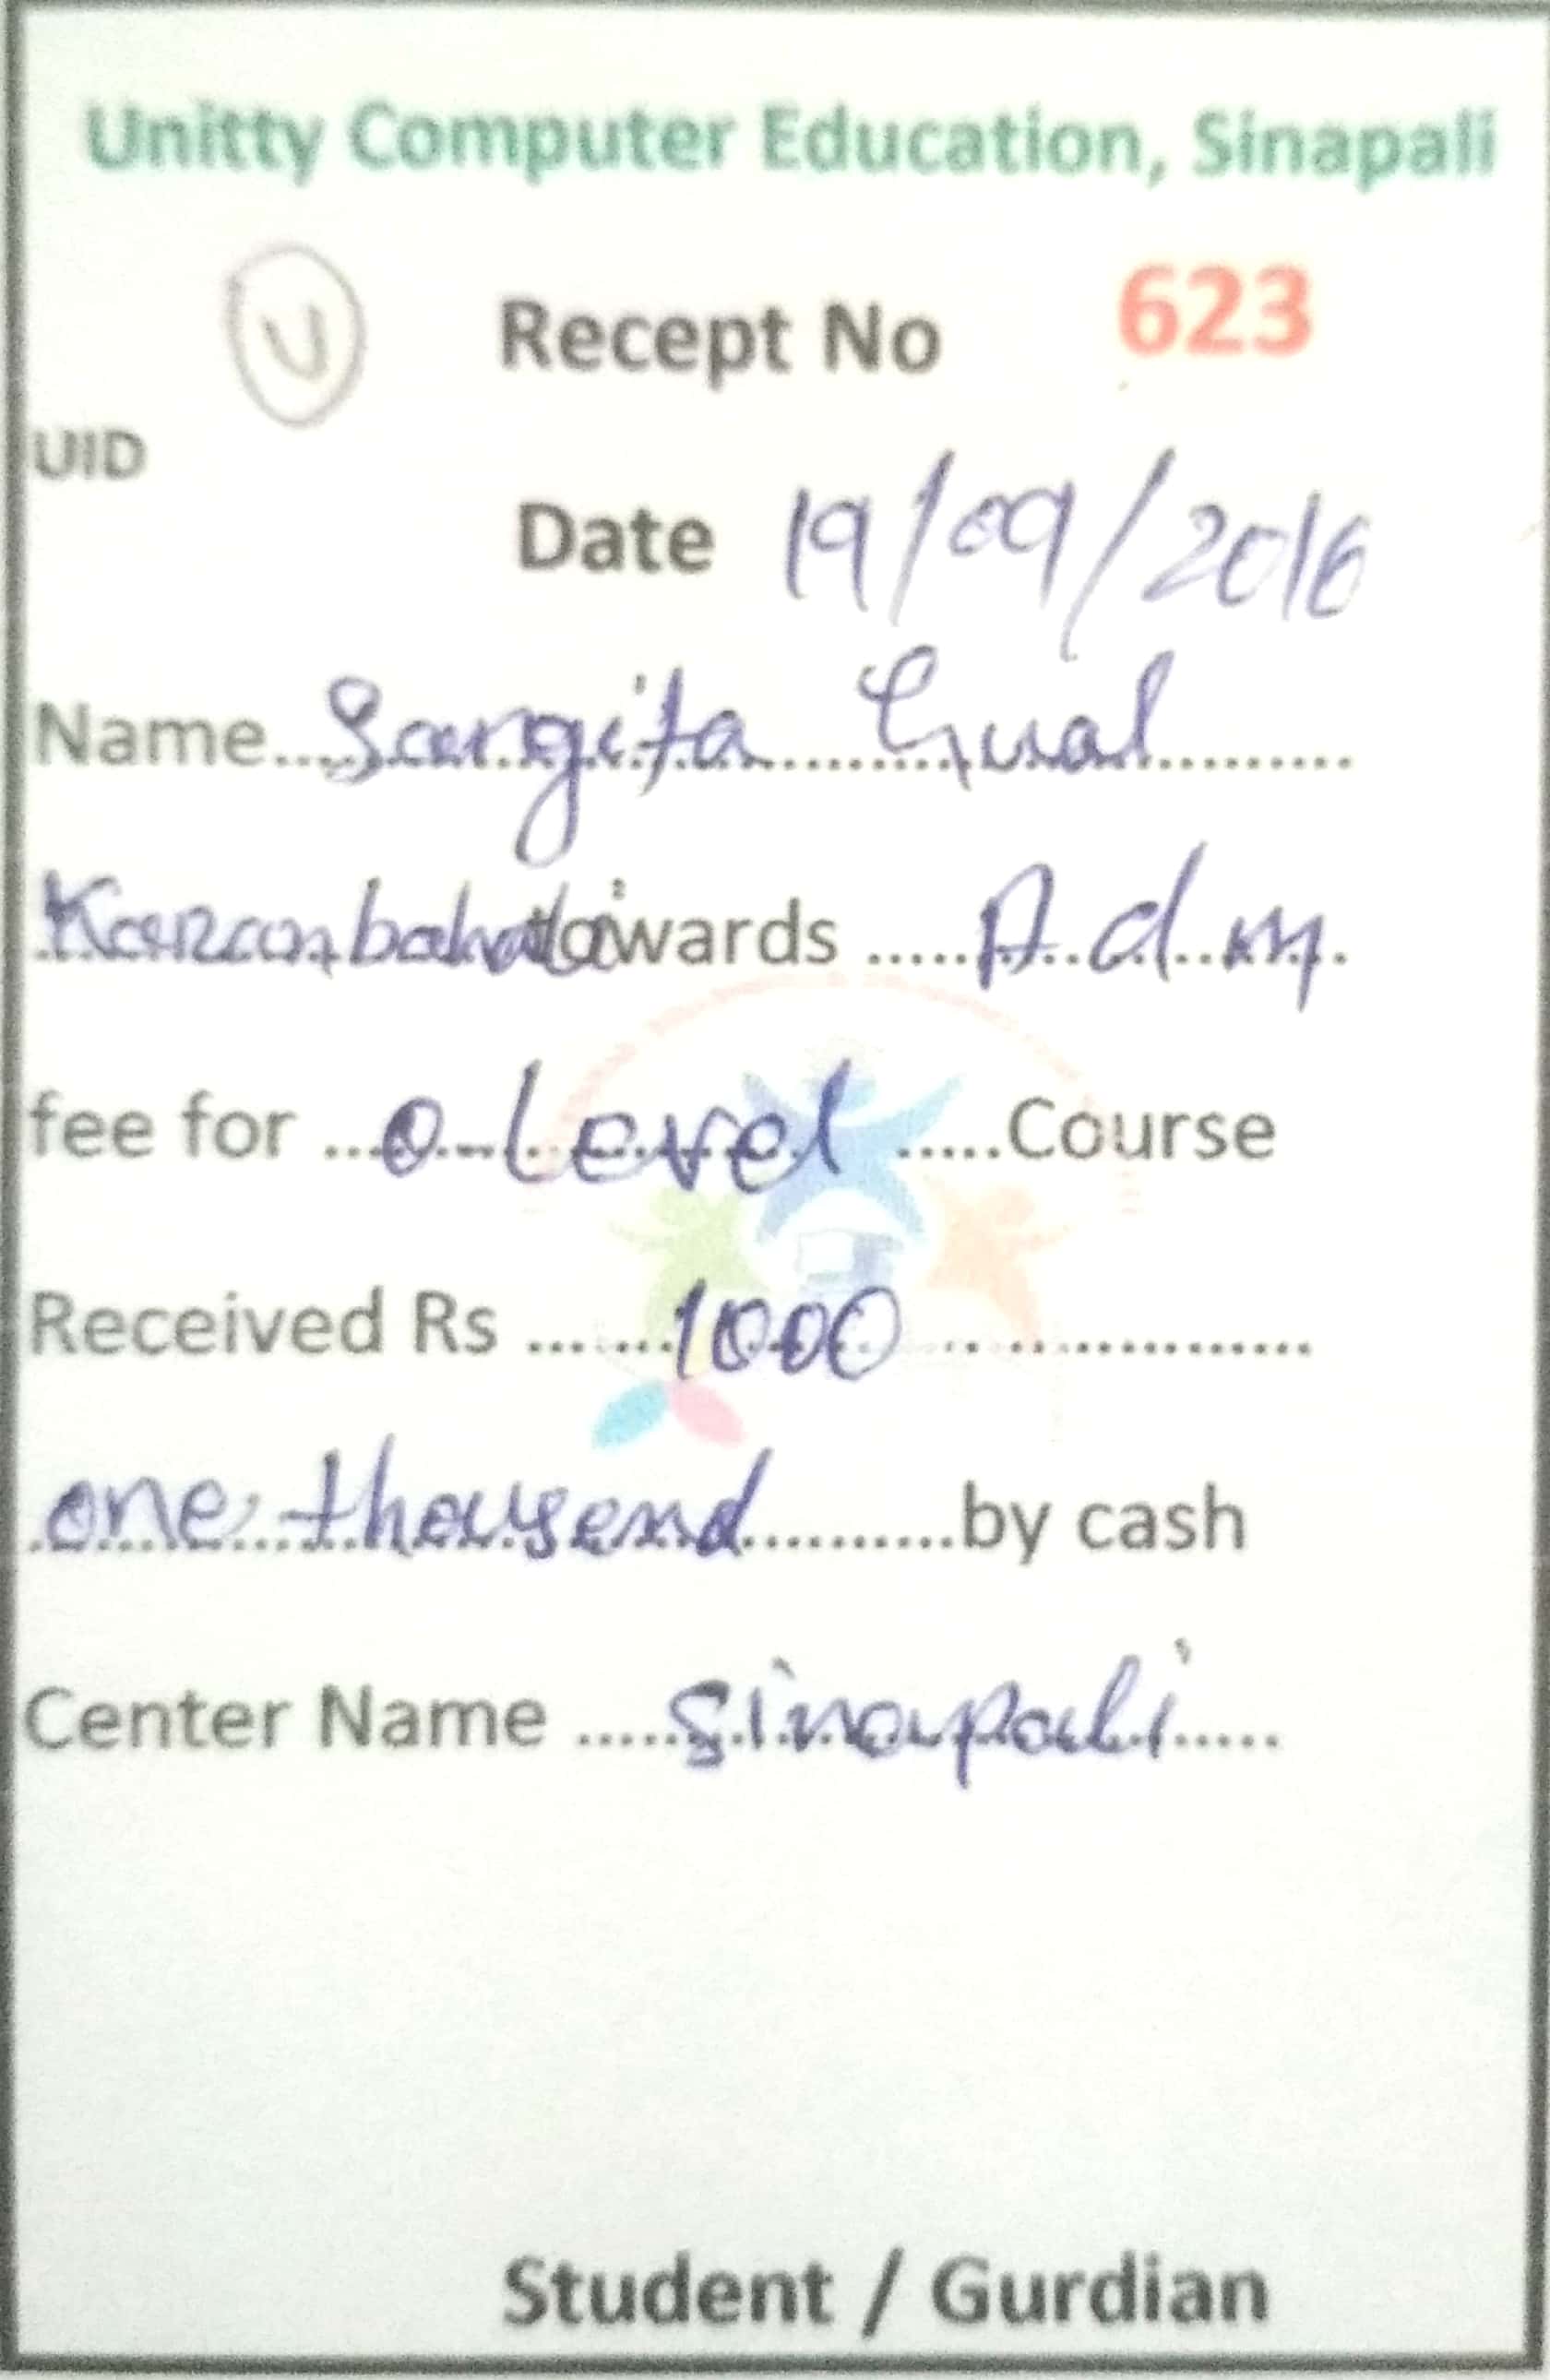 Unitty Computer Education, Sinapali
U Recept No 623
UID
Date 19/09/2016
Name Sangita Gual
towards Adm
fee for O-Level Course
Received Rs 1000
one thousend by cash
Center Name Sinapali
Student / Gurdian